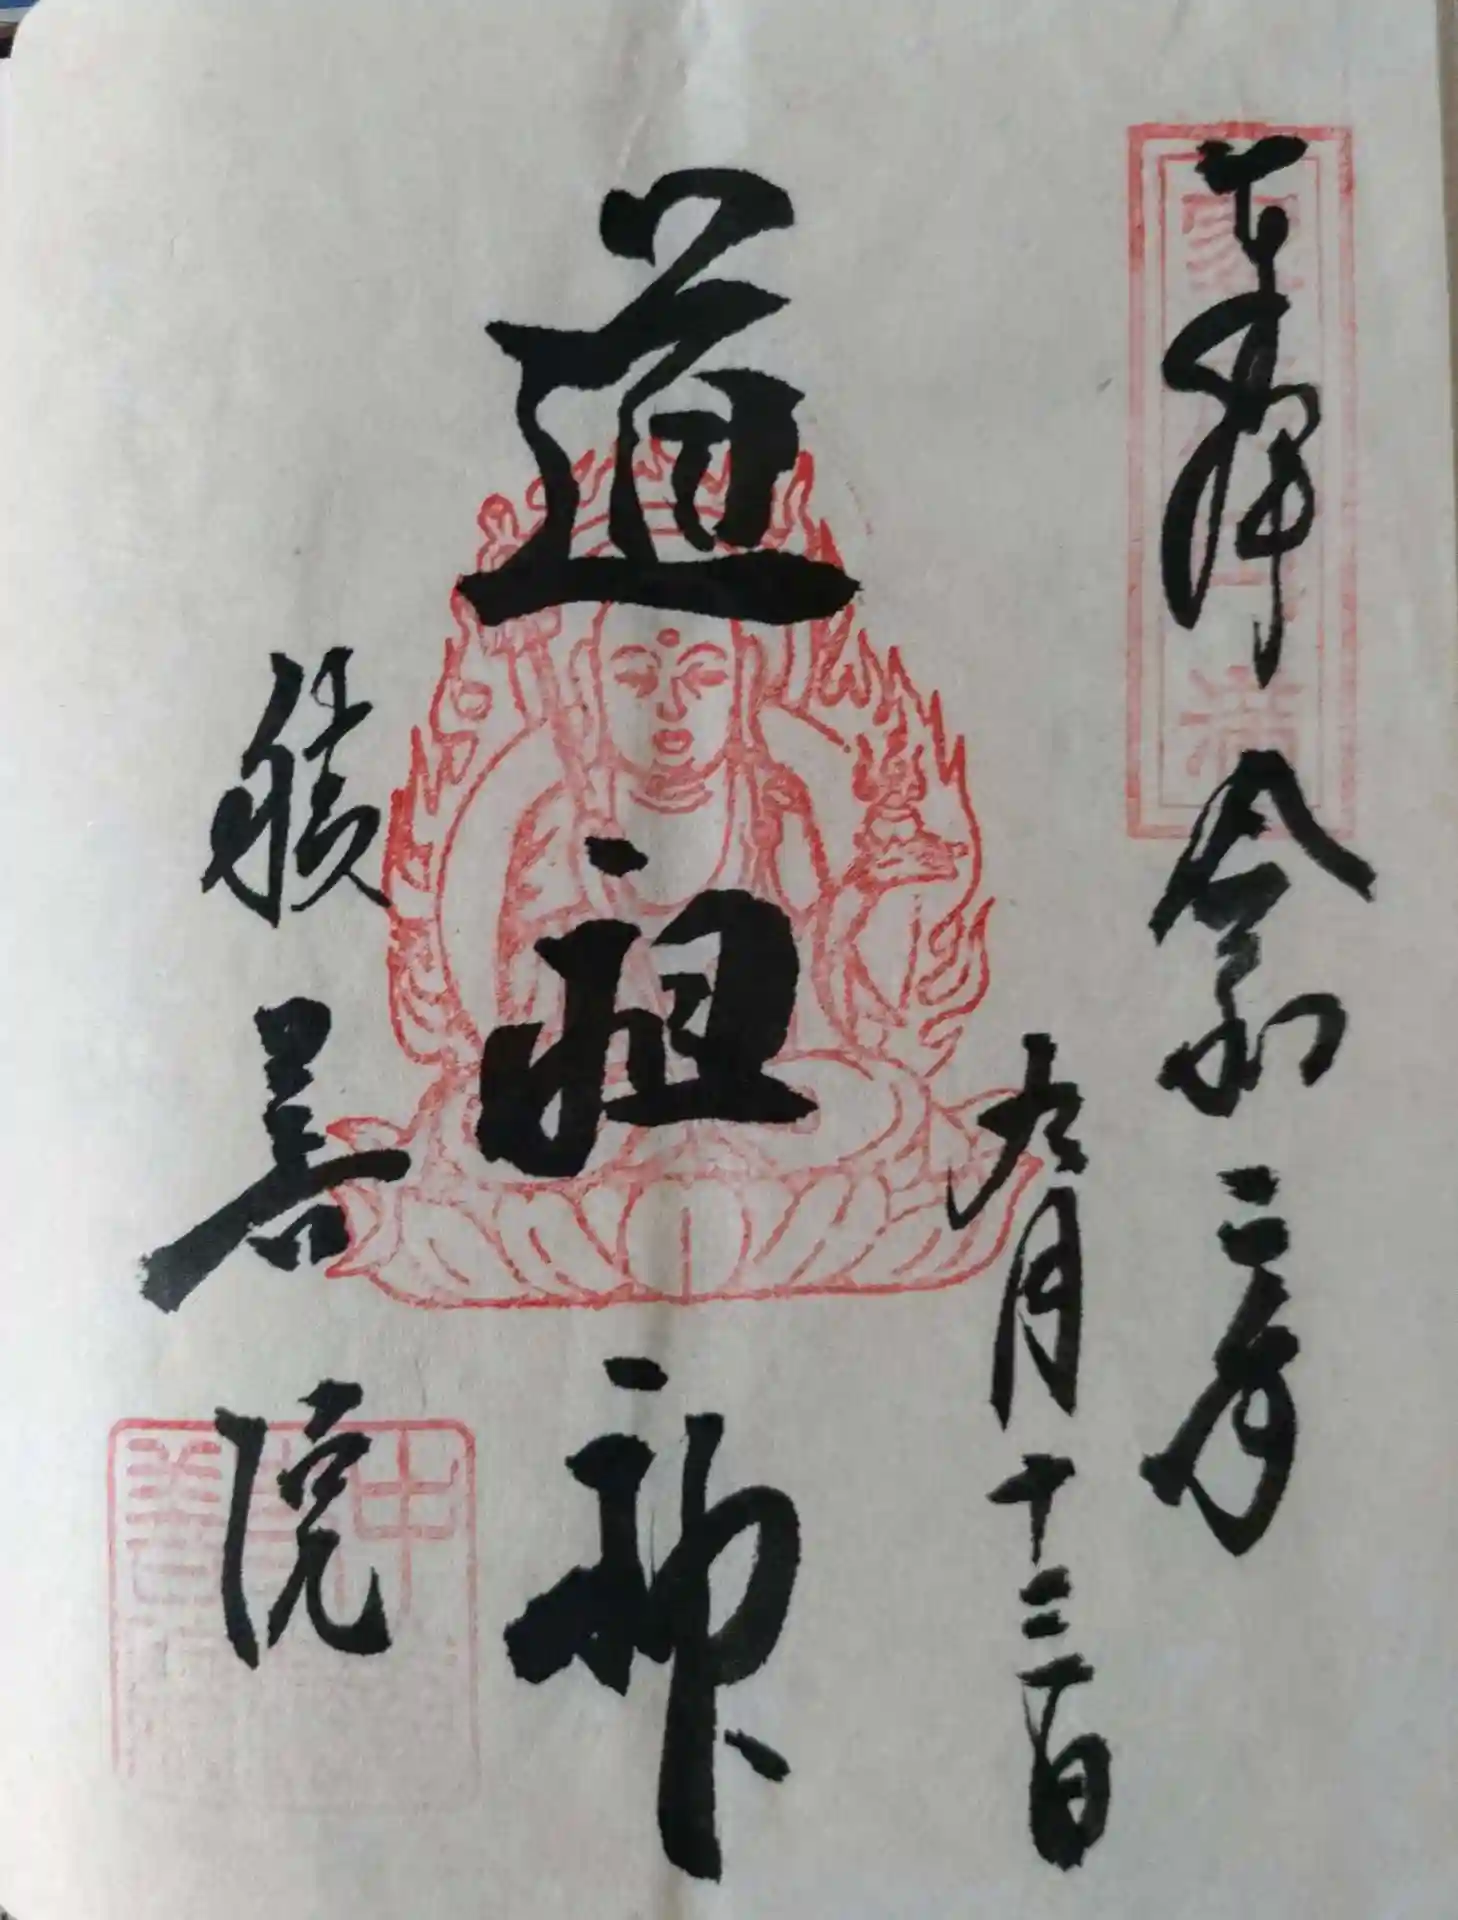 奉拝 令和二年
九月十三日
道祖神
積善院